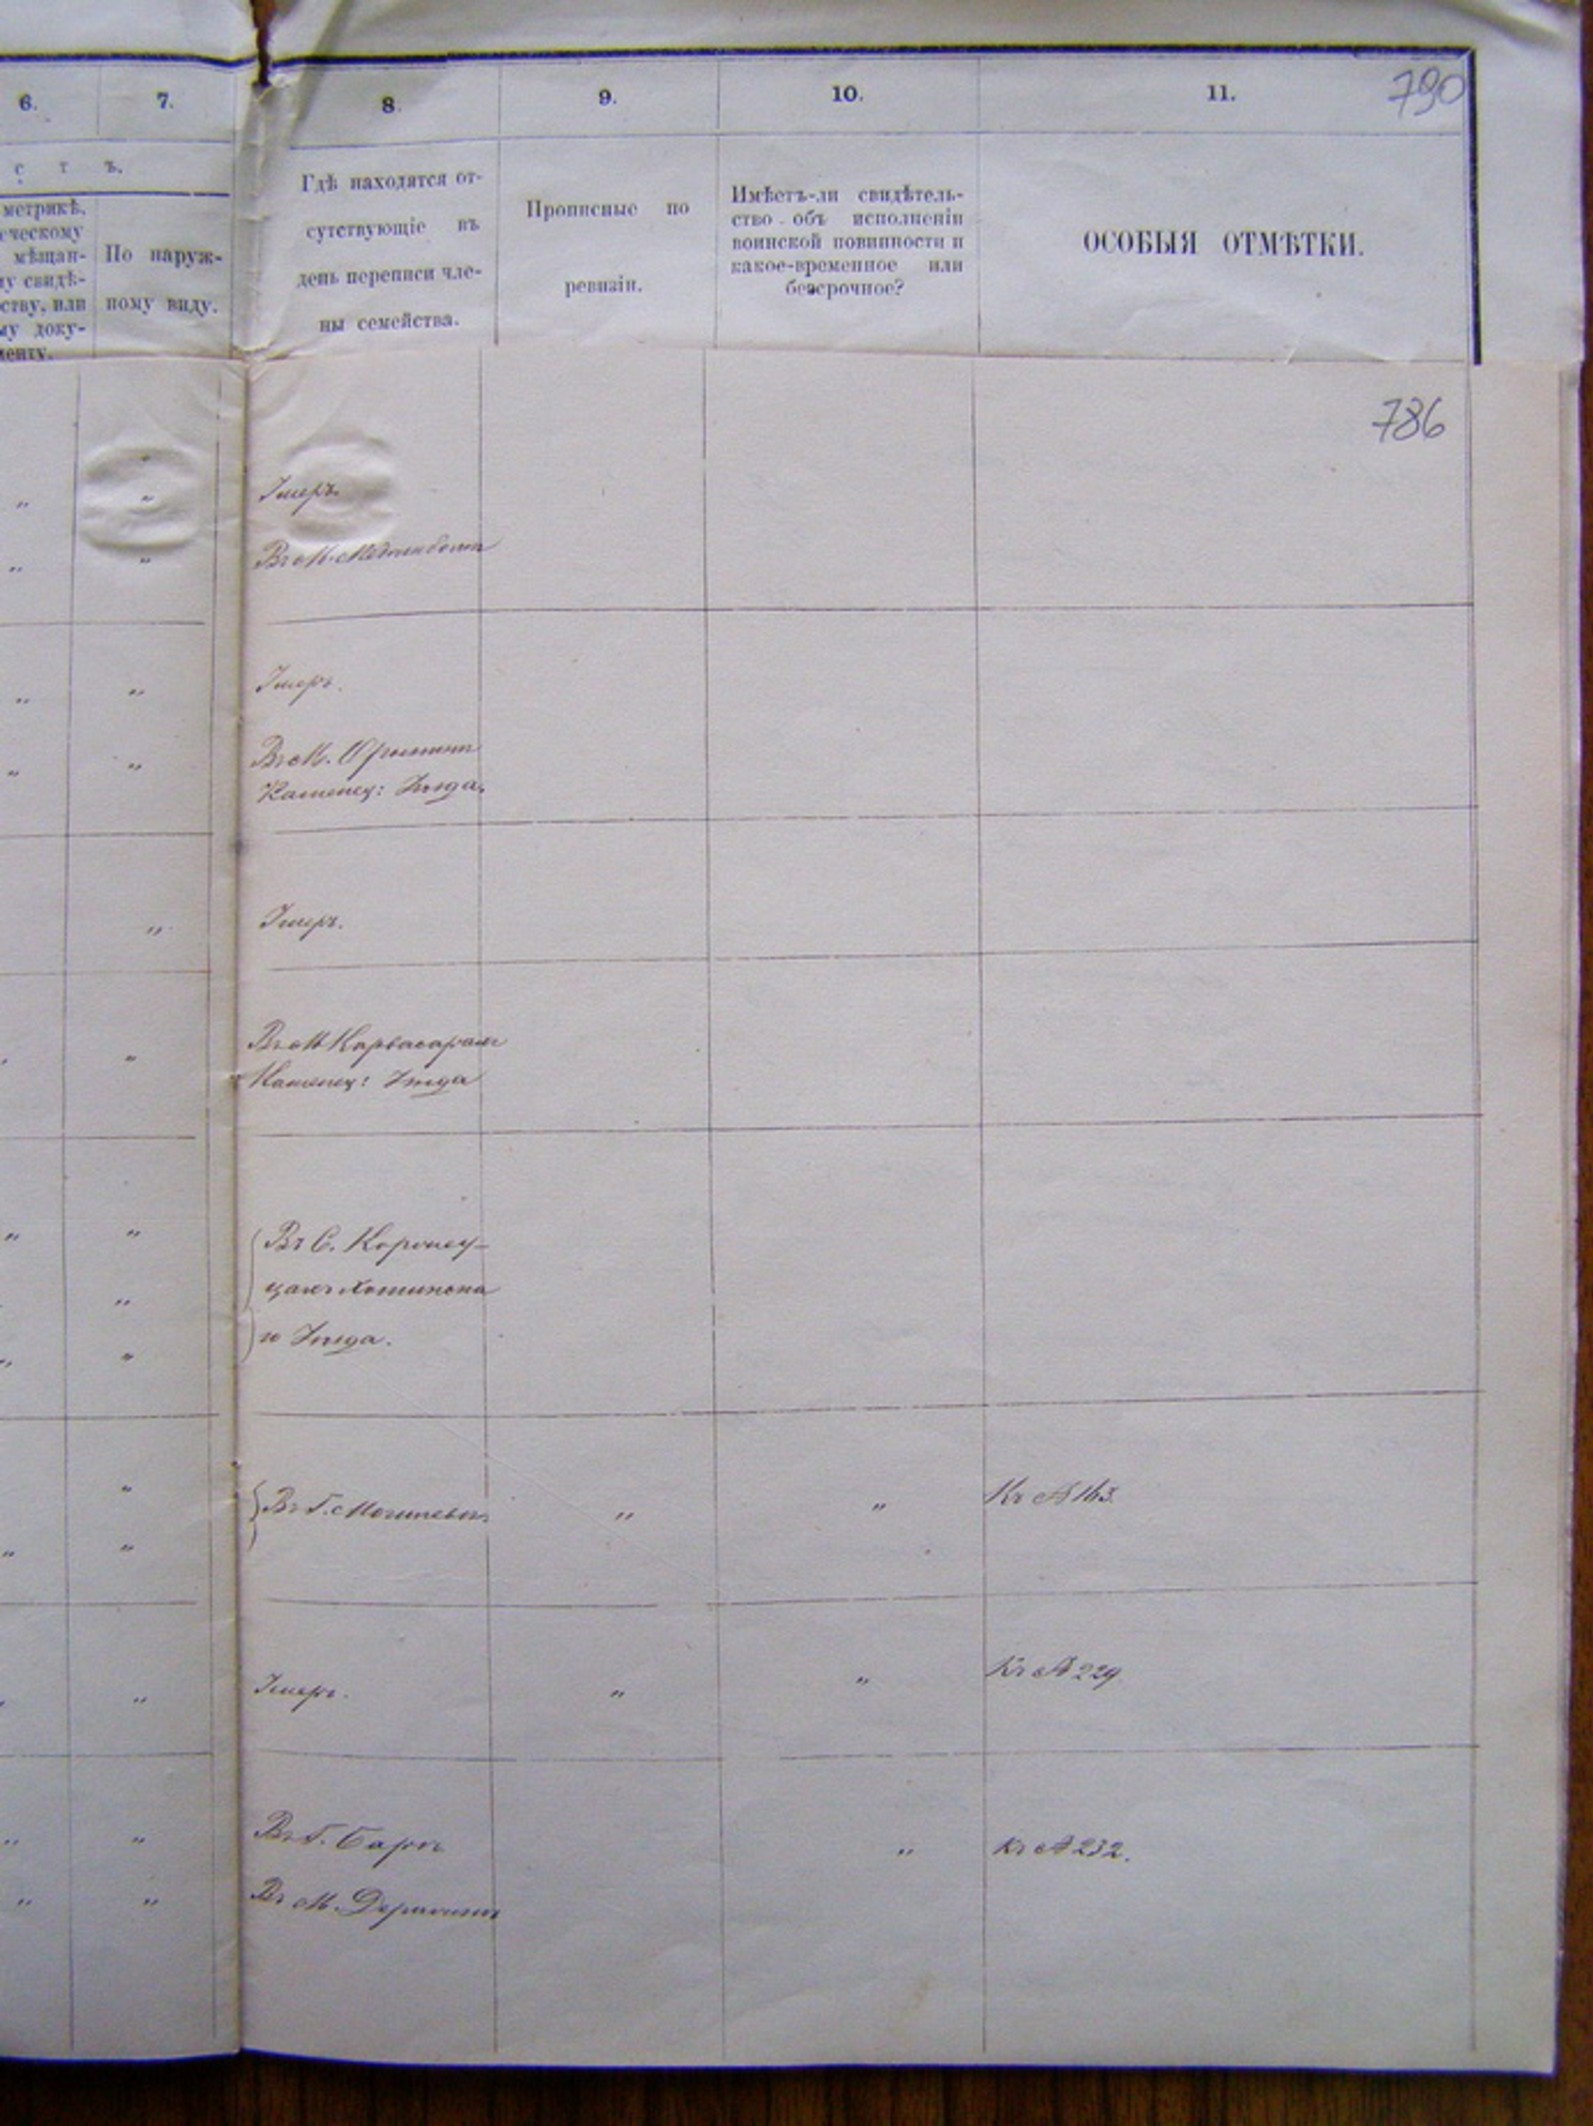 790
6. 7. 8. 9. 10. 11.
с т ъ.
метрикѣ,
ческому
мѣщан-
му свидѣ-
ству, или
му доку-
менту.
По наруж-
ному виду.
Гдѣ находятся от-
сутствующіе въ
день переписи чле-
ны семейства.
Прописные по
ревизіи.
Имѣетъ-ли свидѣтель-
ство объ исполненіи
воинской повинности и
какое-временное или
безсрочное?
ОСОБЫЯ ОТМѢТКИ.
786
" " Умеръ.
" " Въ М.
" " Умеръ.
" " Въ М.
Каменец: Уѣзда.
" Умеръ.
" " Въ М Карвасарахъ
Каменец: Уѣзда
" " Въ С. Коропец-
" цахъ Хотинска
" " го Уѣзда.
" Въ Г. Могилевѣ. " " Къ № 163.
" "
" " Умеръ. " " Къ № 229.
" " Въ Г. Барѣ " Къ № 232.
" " Въ М. Деражнѣ